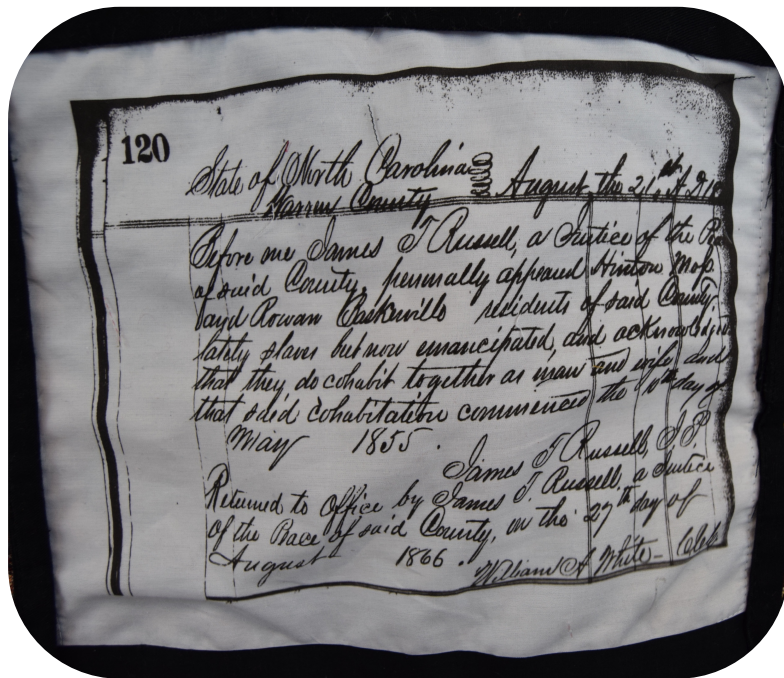 120
State of North Carolina August, the 21st A.D 18
Warren County
Before me James T Russell, a Justice of the Pea
of said County, personally appeared Hinton Mos
and Rowan Baskerville residents of said County
lately slaves but now emancipated, and acknowledge
that they do cohabit together as man and wife, and
that said cohabitation commenced the day of
May 1855.
James T Russell, J.P.
Returned to Office by James T. Russell, a Justice
of the Peace of said County, on the 27th day of
August 1866.
William A White - Clerk